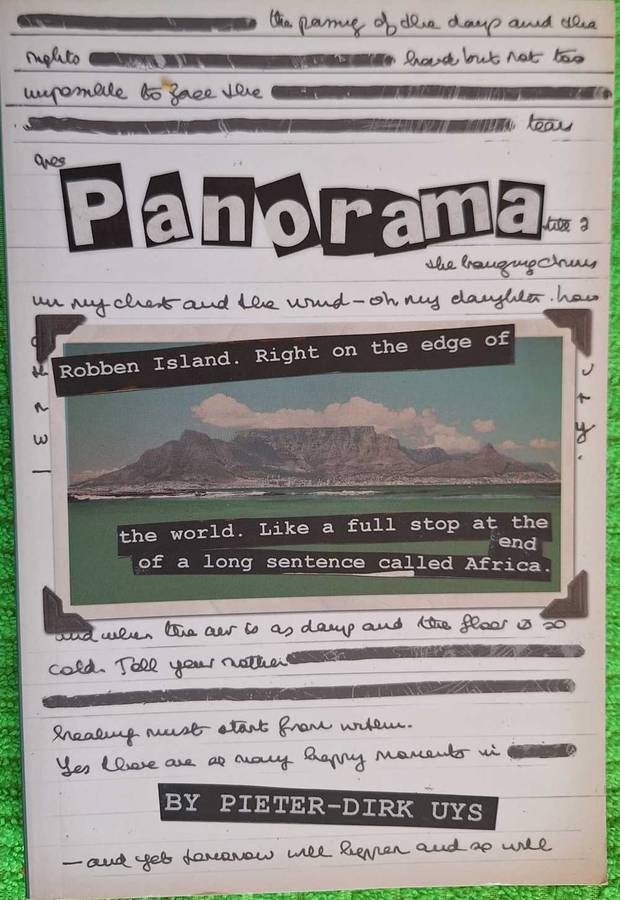 the passing of the days and the
nights hard but not too
impossible to face the
tears
Panorama
the hanging
in my chest and the wind – oh my daughter. how
Robben Island. Right on the edge of
the world. Like a full stop at the
end
of a long sentence called Africa.
and when the air is as damp and the floor is so
cold. Tell your mother
healing must start from within.
Yes there are so many happy moments in
BY PIETER-DIRK UYS
– and yet tomorrow will happen and so will